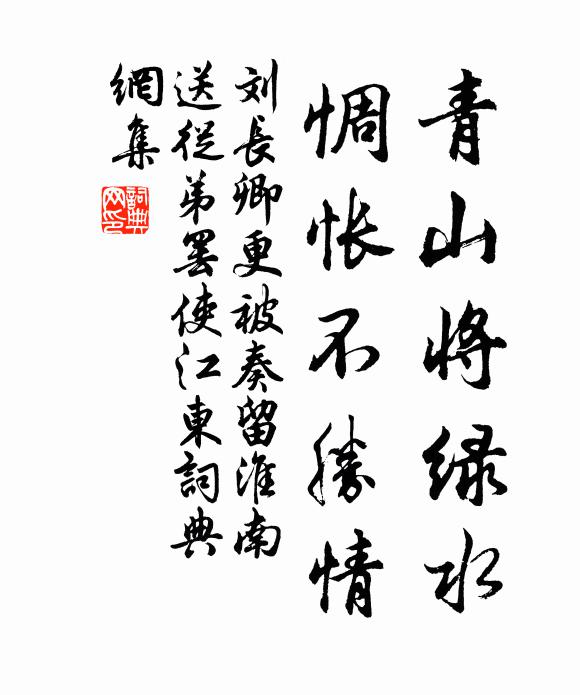 青山将绿水
惆怅不勝情
刘長卿更被奏留淮南
送從弟罢使江東詞典
網集
詞典网印